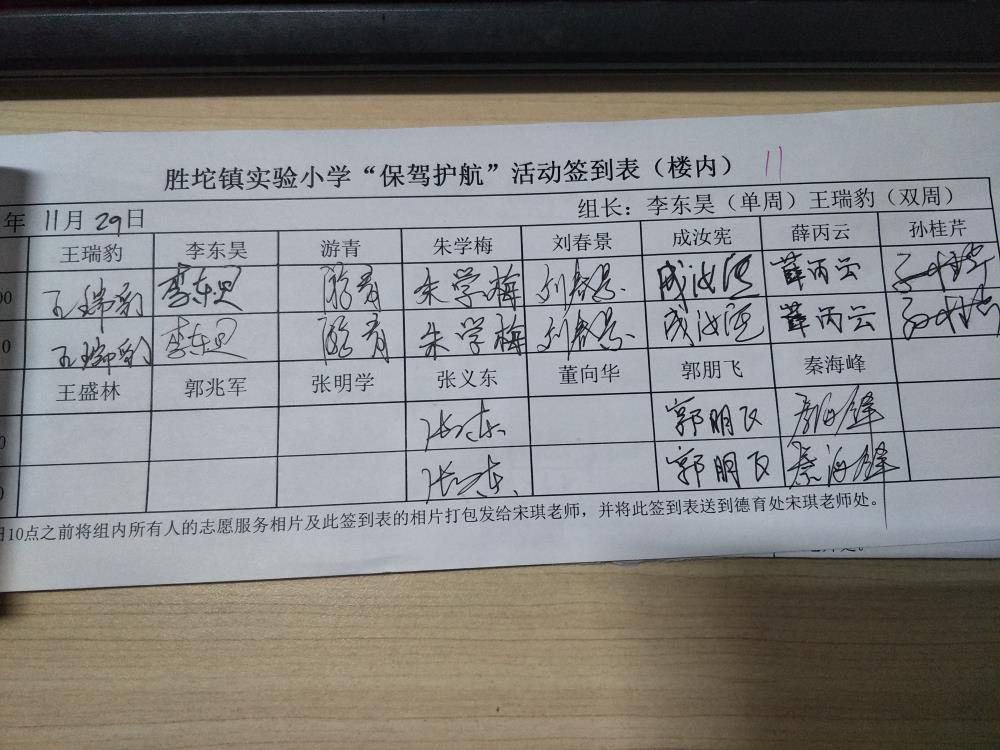 胜坨镇实验小学“保驾护航”活动签到表（楼内） 11
年 11月 29日 组长：李东昊（单周）王瑞豹（双周）
王瑞豹 李东昊 游青 朱学梅 刘春景 成汝宪 薛丙云 孙桂芹
00 王瑞豹 李东昊 游青 朱学梅 刘春景 成汝宪 薛丙云 孙桂芹
0 王瑞豹 李东昊 游青 朱学梅 刘春景 成汝宪 薛丙云 孙桂芹
王盛林 郭兆军 张明学 张义东 董向华 郭朋飞 秦海峰
0 张义东 郭朋飞 秦海峰
张义东 郭朋飞 秦海峰
10点之前将组内所有人的志愿服务相片及此签到表的相片打包发给宋琪老师，并将此签到表送到德育处宋琪老师处。